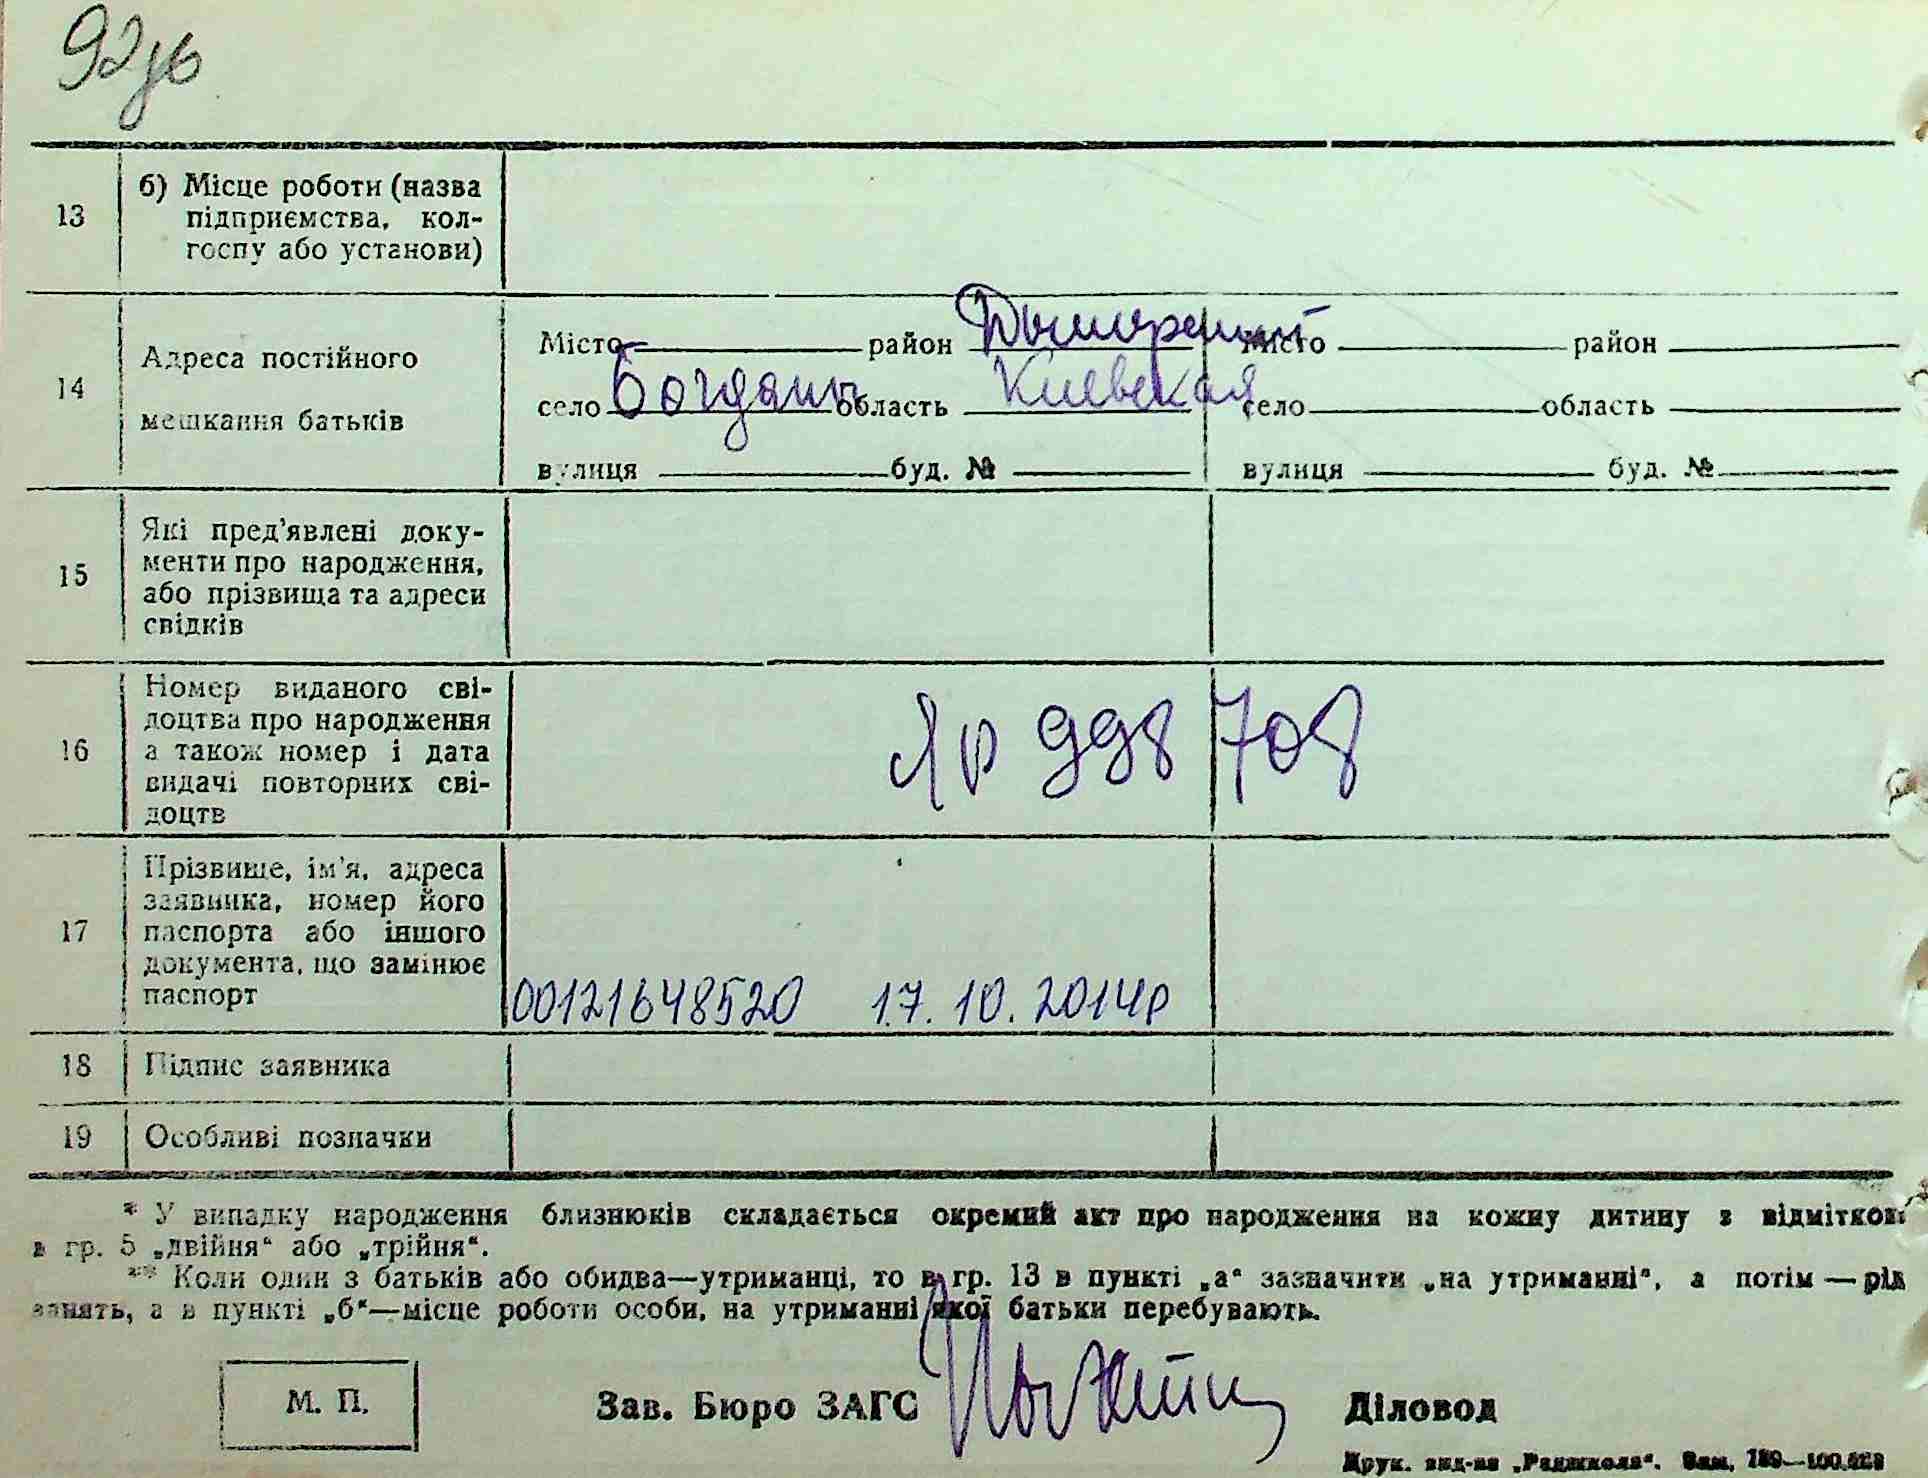 92
13
б) Місце роботи (назва
підприємства, кол-
госпу або установи)
14
Адреса постійного
мешкання батьків
Місто район Дымерский Місто район
село Богданы область Киевская село область
вулиця буд. № вулиця буд. №
15
Які пред'явлені доку-
менти про народження,
або прізвища та адреси
свідків
16
Номер виданого сві-
доцтва про народження
а також номер і дата
видачі повторних сві-
доцтв
ЯР 998708
17
Прізвище, ім'я, адреса
заявника, номер його
паспорта або іншого
документа, що замінює
паспорт
00121648520 17.10.2014р
18 Підпис заявника
19 Особливі позначки
* У випадку народження близнюків складається окремий акт про народження на кожну дитину з відміткою
в гр. 5 „двійня“ або „трійня“.
** Коли один з батьків або обидва—утриманці, то в гр. 13 в пункті „а“ зазначити „на утриманні“, а потім — рід
занять, а в пункті „б“—місце роботи особи, на утриманні якої батьки перебувають.
М. П. Зав. Бюро ЗАГС Діловод
Друк. вид-ва „Рад. школа“. Зам.